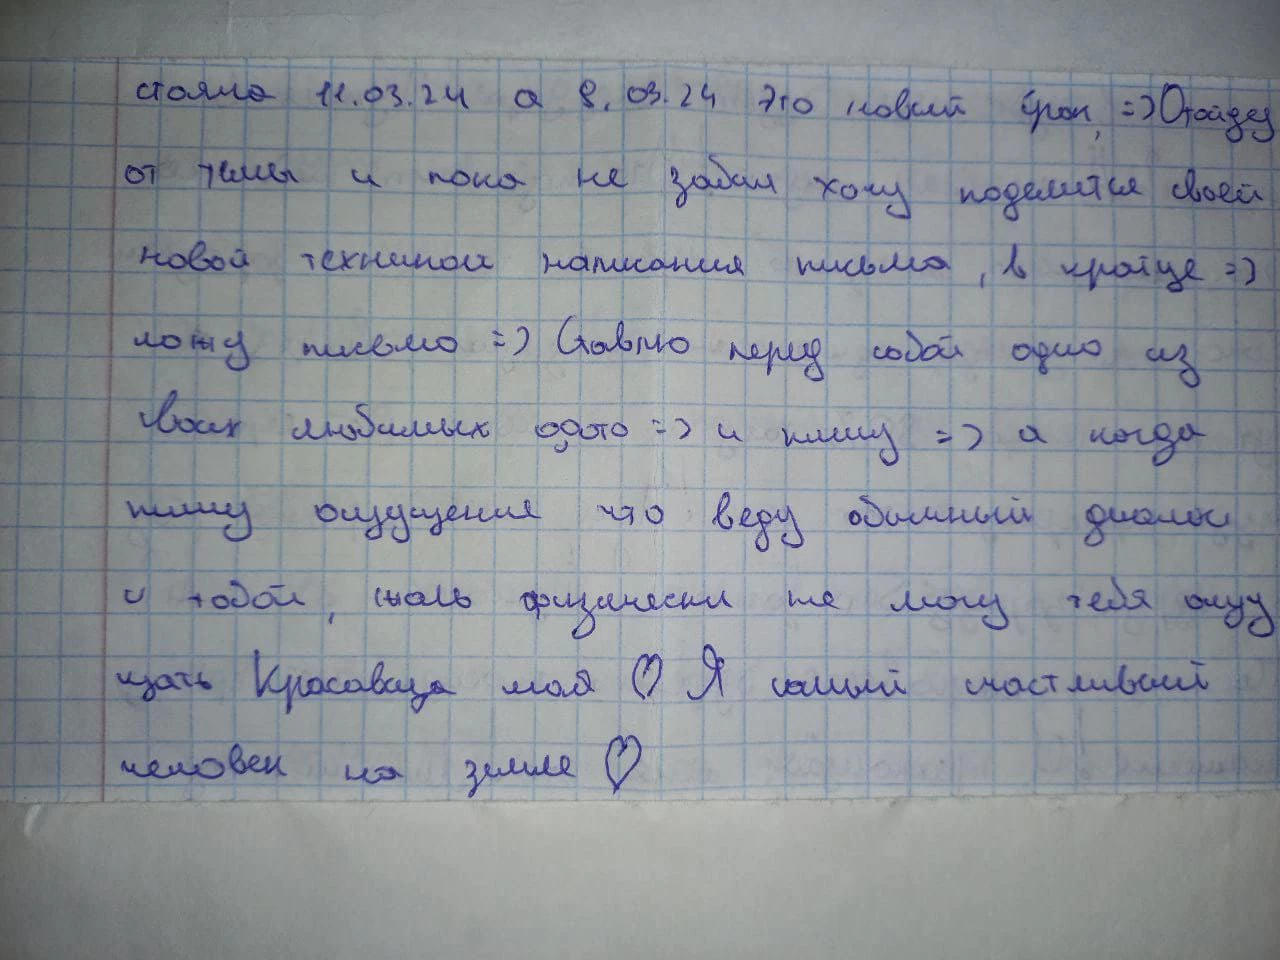 стояла 11.03.24 а 8.03.24 это новый срок, =) Отойду
от темы и пока не забыл хочу поделится своей
новой техникой написания письма, в кратце =)
ложу письмо =) Ставлю перед собой одно из
своих любимых фото =) и пишу =) а когда
пишу ощущения что веду обычный диалог
с тобой, жаль физически не могу тебя ощу
щать Красавица моя ♡ Я самый счастливый
человек на земле ♡